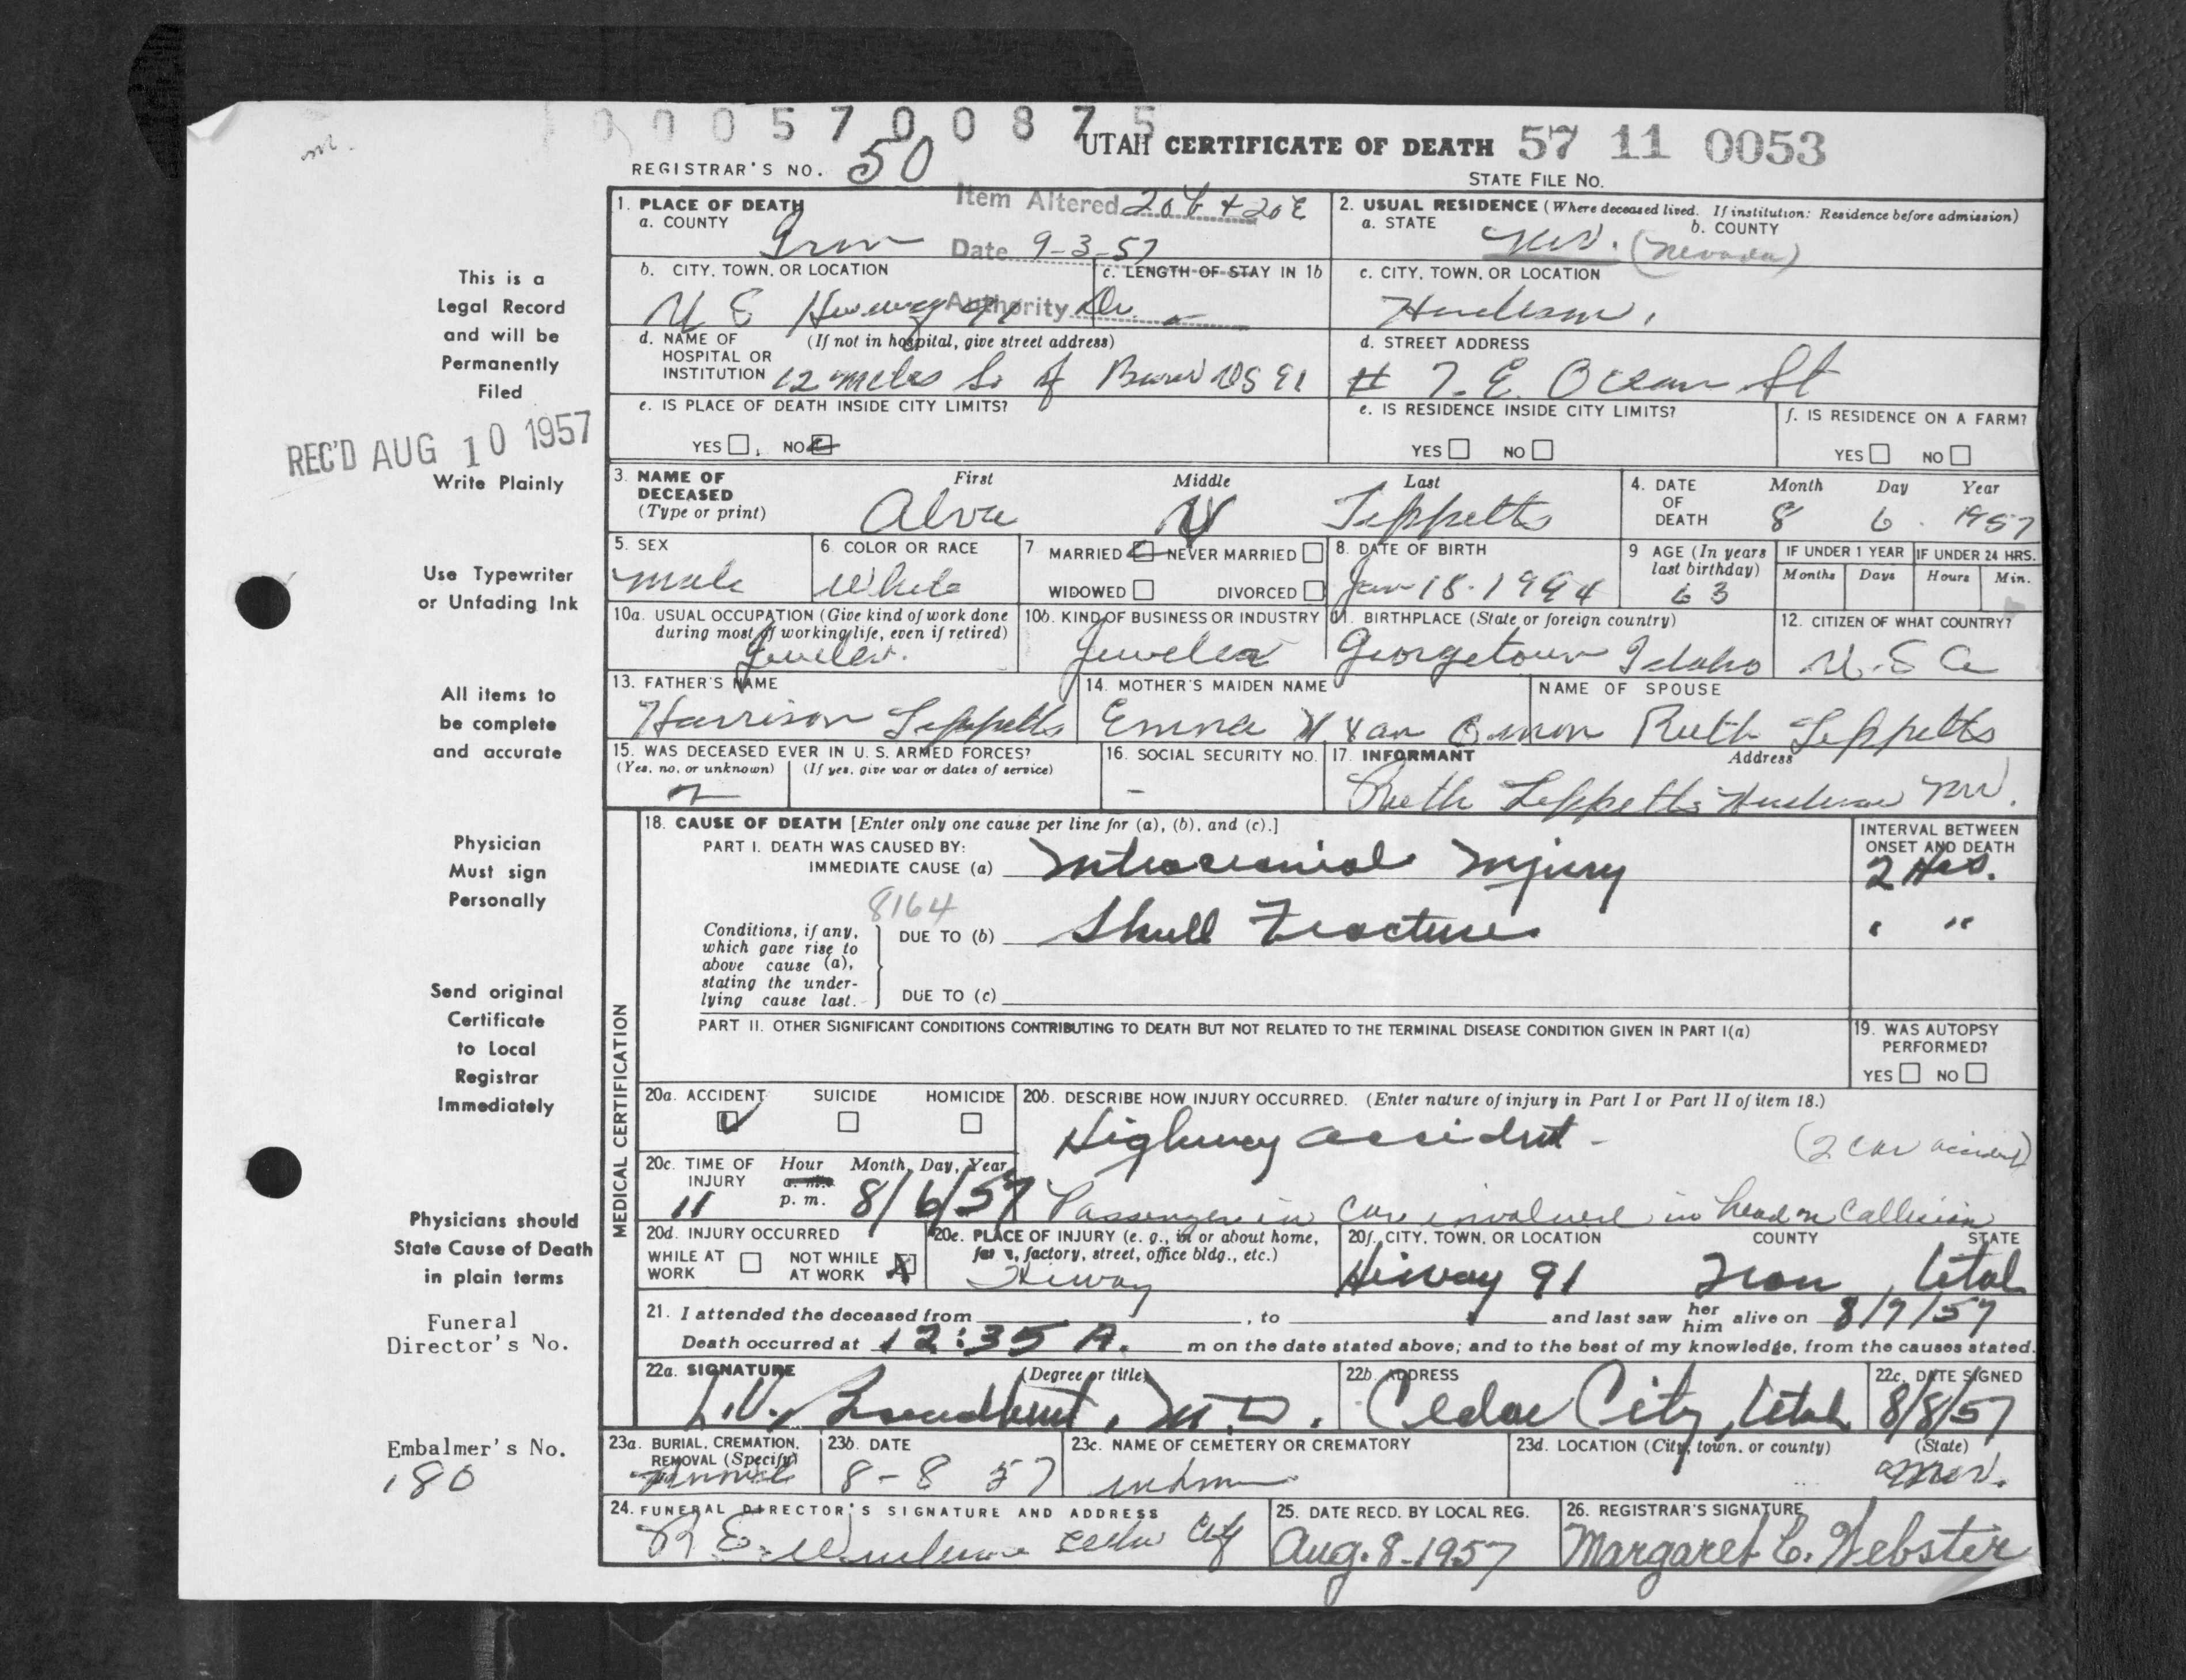 0 0 0 5 7 0 0 8 7 5
UTAH CERTIFICATE OF DEATH 57 11 0053
REGISTRAR'S NO. 50
STATE FILE NO.
Item Altered 20b + 20E
Date 9-3-57
Authority Dr.
1. PLACE OF DEATH
a. COUNTY
Iron
2. USUAL RESIDENCE (Where deceased lived. If institution: Residence before admission)
a. STATE b. COUNTY
Nev. (Nevada)
b. CITY, TOWN, OR LOCATION
U S Hiway 91
c. LENGTH OF STAY IN 1b
c. CITY, TOWN, OR LOCATION
d. NAME OF HOSPITAL OR INSTITUTION (If not in hospital, give street address)
12 miles So of US 91
d. STREET ADDRESS
# 7. E. Ocean St
e. IS PLACE OF DEATH INSIDE CITY LIMITS?
YES NO
e. IS RESIDENCE INSIDE CITY LIMITS?
YES NO
f. IS RESIDENCE ON A FARM?
YES NO
3. NAME OF DECEASED (Type or print)
First Middle Last
Alva Teppetts
4. DATE OF DEATH
Month Day Year
8 6 1957
5. SEX
Male
6. COLOR OR RACE
White
7. MARRIED NEVER MARRIED
WIDOWED DIVORCED
8. DATE OF BIRTH
Jan 18. 1994
9 AGE (In years last birthday)
63
IF UNDER 1 YEAR IF UNDER 24 HRS.
Months Days Hours Min.
10a. USUAL OCCUPATION (Give kind of work done during most of working life, even if retired)
Jeweler.
10b. KIND OF BUSINESS OR INDUSTRY
Jeweler
11. BIRTHPLACE (State or foreign country)
Georgetown Idaho
12. CITIZEN OF WHAT COUNTRY?
U.S a
13. FATHER'S NAME
Harrison Teppetts
14. MOTHER'S MAIDEN NAME
Emma Van
NAME OF SPOUSE
Ruth Teppetts
15. WAS DECEASED EVER IN U. S. ARMED FORCES?
(Yes, no, or unknown) (If yes, give war or dates of service)
16. SOCIAL SECURITY NO.
-
17. INFORMANT Address
Ruth Teppetts Nev.
MEDICAL CERTIFICATION
18. CAUSE OF DEATH [Enter only one cause per line for (a), (b), and (c).]
PART I. DEATH WAS CAUSED BY:
IMMEDIATE CAUSE (a) Intracranial Injury
INTERVAL BETWEEN ONSET AND DEATH
2 Hrs.
8164
Conditions, if any, which gave rise to above cause (a), stating the underlying cause last.
DUE TO (b) Skull Fracture
" "
DUE TO (c)
PART II. OTHER SIGNIFICANT CONDITIONS CONTRIBUTING TO DEATH BUT NOT RELATED TO THE TERMINAL DISEASE CONDITION GIVEN IN PART I(a)
19. WAS AUTOPSY PERFORMED?
YES NO
20a. ACCIDENT SUICIDE HOMICIDE
20b. DESCRIBE HOW INJURY OCCURRED. (Enter nature of injury in Part I or Part II of item 18.)
Highway accident - (2 car accident)
Passenger in car involved in head on Collision
20c. TIME OF INJURY
Hour Month, Day, Year
a. m.
p. m.
11 8/6/57
20d. INJURY OCCURRED
WHILE AT WORK NOT WHILE AT WORK X
20e. PLACE OF INJURY (e. g., in or about home, farm, factory, street, office bldg., etc.)
Hiway
20f. CITY, TOWN, OR LOCATION COUNTY STATE
Hiway 91 Iron, Utah
21. I attended the deceased from , to and last saw her him alive on 8/7/57
Death occurred at 12:35 A. m on the date stated above; and to the best of my knowledge, from the causes stated.
22a. SIGNATURE (Degree or title)
L.V. Broadbent, M.D.
22b. ADDRESS
Cedar City, Utah
22c. DATE SIGNED
8/8/57
23a. BURIAL, CREMATION, REMOVAL (Specify)
Removal
23b. DATE
8-8 57
23c. NAME OF CEMETERY OR CREMATORY
23d. LOCATION (City, town, or county) (State)
Nev.
24. FUNERAL DIRECTOR'S SIGNATURE AND ADDRESS
Cedar City
25. DATE RECD. BY LOCAL REG.
Aug. 8-1957
26. REGISTRAR'S SIGNATURE
Margaret C. Webster
This is a
Legal Record
and will be
Permanently
Filed
REC'D AUG 10 1957
Write Plainly
Use Typewriter
or Unfading Ink
All items to
be complete
and accurate
Physician
Must sign
Personally
Send original
Certificate
to Local
Registrar
Immediately
Physicians should
State Cause of Death
in plain terms
Funeral
Director's No.
Embalmer's No.
180